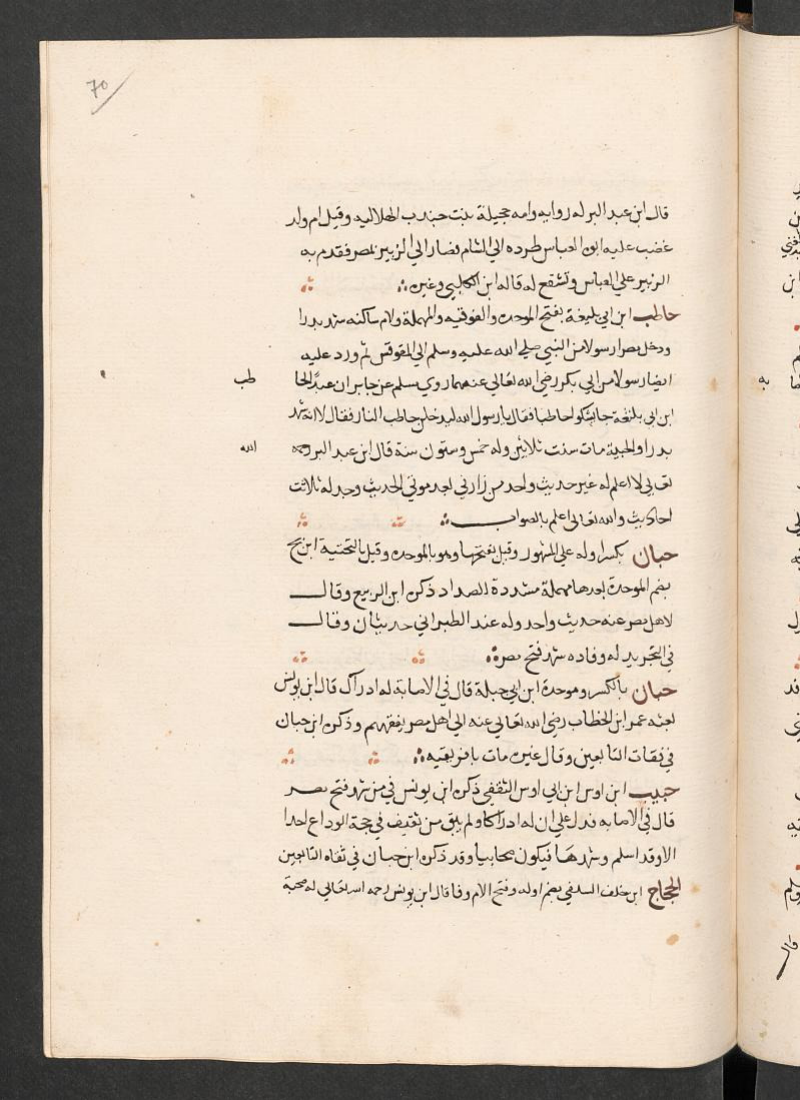 70
قال ابن عبد البر له رواية وامه حجيلة بنت جندب الهلالية وقيل ام ولد
غضب عليه ابوه العباس طرده الى الشام فصار الى الزبير بمصر فقدم به
الزبير على العباس وتشفع له قاله ابن الكلبي وغيره
حاطب ابن ابي بلتعة بفتح الموحدة والفوقيه والمهملة ولام ساكنه شهد بدرا
ودخل مصر رسولا من النبي صلى الله عليه وسلم الى المقوقس ثم ورد عليه
ايضا رسولا من ابي بكر رضي الله تعالى عنهما روي مسلم عن جابر ان عبدًا لحا
طب
ابن ابي بلتعة جا يشكو حاطبا فقال يا رسول الله ليدخلن حاطب النار فقال لا انه شهد
بدرا والحديبية مات سنت ثلاثين وله خمس وستون سنة قال ابن عبد البر رحمه
الله
تعالى لا اعلم له غير حديث واحد من زارني بعد موتي الحديث وجد له ثلاثت
احاديث والله تعالى اعلم بالصواب
حبان بكسر اوله على المشهور وقيل بفتحها وهو بالموحدة وقيل بالتحتية ابن بح
بضم الموحدة بعدها مهملة مشددة الصداد ذكره ابن الربيع وقال
لاهل مصر عنه حديث واحد وله عند الطبراني حديثان وقال
في التجريد له وفاده شهد فتح مصر
حبان بالكسر وموحدة ابن ابي جبلة قال في الاصابة له ادراك قال ابن يونس
بعثه عمر ابن الخطاب رضي الله تعالى عنه الى اهل مصر يفقههم وذكره ابن حبان
في ثقات التابعين وقال غيره مات بافريقيه
حبيب ابن اوس ابن ابي اوس الثقفي ذكره ابن يونس في من شهد فتح مصر
قال في الاصابه فدل على ان له ادراكا ولم يبق من ثقيف في حجة الوداع احدا
الا وقد اسلم وشهدها فيكون صحابيا وقد ذكره ابن حبان في ثقاه التابعين
الحجاج ابن خلف السلفي بضم اوله وفتح الام وفا قال ابن يونس رحمه الله تعالى له صحبة